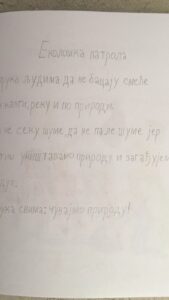 Еколошка патрола
људима да не бацају смеће
реку и по природи.
не секу шуме, да не пале шуме јер
уништавамо природу и
свима: чувајмо природу!